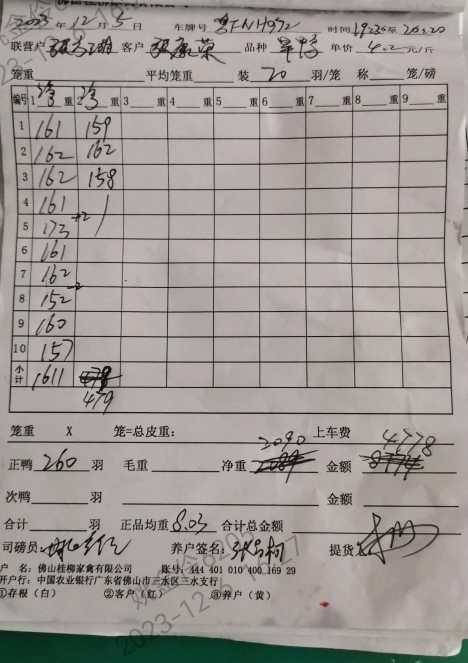 2023年12月5日 车牌号 粤FNH972 时间
联营户 客户 品种 单价 4.2元/斤
笼重 平均笼重 装 20 羽/笼 称 笼/磅
编号 1净重 2净重 3 重 4 重 5 重 6 重 7 重 8 重 9 重
1 161 159
2 162 162
3 162 158
4 161
5 173 +2
6 161
7 162
8 152 -2
9 160
10 157
小计 1611
479
笼重 X 笼=总皮重: 2090 上车费 4778
正鸭 260 羽 毛重 净重 金额
次鸭 羽 金额
合计 羽 正品均重 8.03 合计总金额
司磅员: 养户签名: 提货
户 名: 佛山桂柳家禽有限公司 账号: 444 401 010 400 169 29
开户行: 中国农业银行广东省佛山市三水区三水支行
①存根（白） ②客户（红） ③养户（黄）